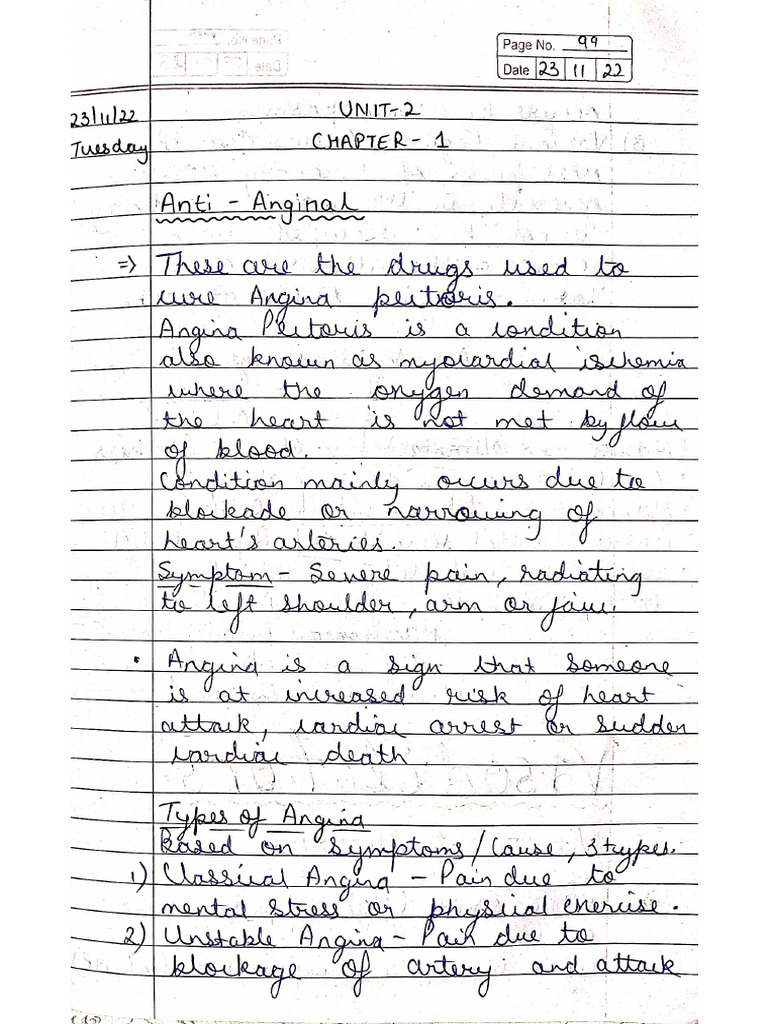 Page No. 99
Date 23 11 22
23/11/22
UNIT-2
Tuesday
CHAPTER - 1
Anti - Anginal
=> These are the drugs used to
cure Angina pectoris.
Angina Pectoris is a condition
also known as myocardial ischemia
where the oxygen demand of
the heart is not met by flow
of blood.
Condition mainly occurs due to
blockade or narrowing of
heart's arteries.
Symptom - Severe pain, radiating
to left shoulder, arm or jaw.
• Angina is a sign that someone
is at increased risk of heart
attack, cardiac arrest or sudden
cardiac death.
Types of Angina
Based on symptoms/cause, 3 types.
1) Classical Angina - Pain due to
mental stress or physical exercise.
2) Unstable Angina - Pain due to
blockage of artery and attack